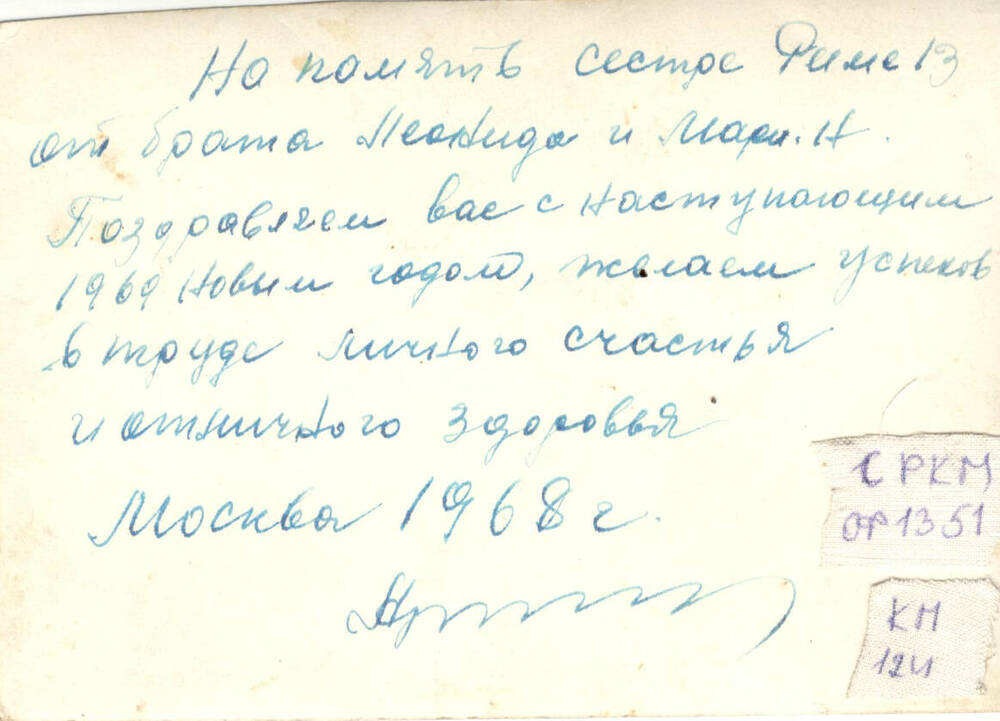 На память сестре Риме
от брата Леонида и Мари. Н.
Поздравляем вас с наступающим
1969 Новым годом, желаем успехов
в труде личного счастья
и отличного здоровья
Москва 1968 г.
СРКМ
ОФ 1351
КМ